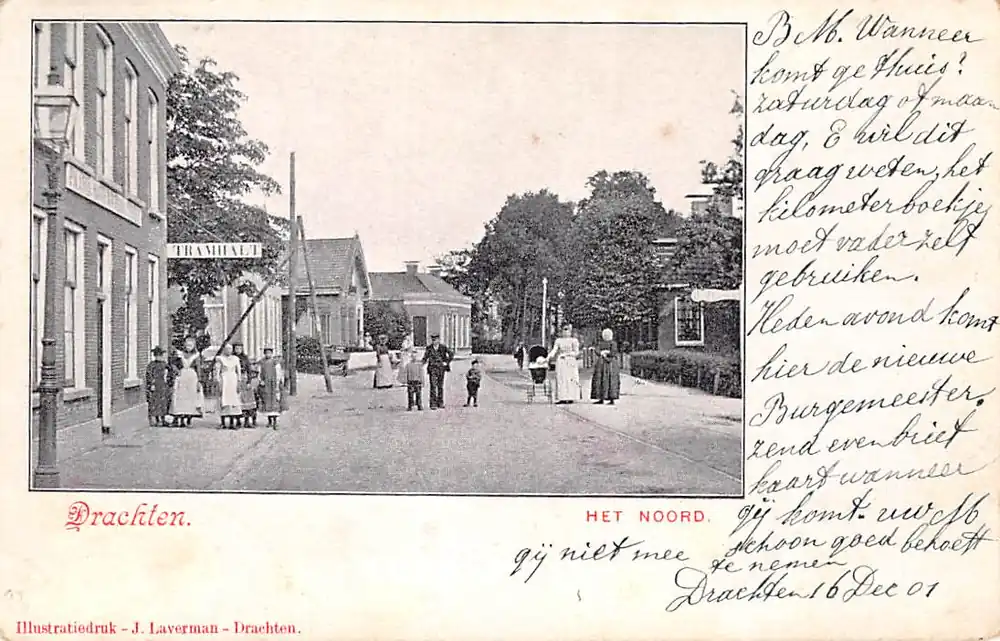 B M. Wanneer
komt ge thuis?
zaturdag of maan
dag, E wil dit
graag weten, het
kilometerboekje
moet vader zelf
gebruiken.
Heden avond komt
hier de nieuwe
Burgemeester.
zend even brief
kaart wanneer
gij komt. uw M
schoon goed behoeft
gij niet mee te nemen
Drachten 16 Dec 01
TRAMHALT
Drachten.
HET NOORD.
Illustratiedruk - J. Laverman - Drachten.